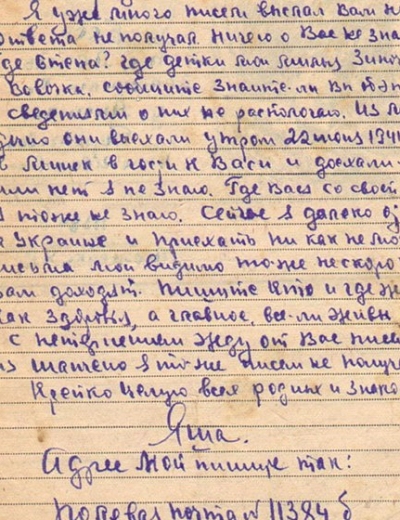 Я уже много писем выслал Вам н
ответа не получал. Ничего о Вас не зна
де Степа? где детки мои милых Зино
Вовочка, сообщите знаите-ли Вы об эт
сведениям о них не распологаю. Из М
они выехали утром 22 июня 194
в Минск в гости к Васи и доехали-
или нет я не знаю. Где Вася со своей
я тоже не знаю. Сейчас я далеко от
Украине и приехать ни как не мо
письма мои видимо то-же не скоро
вам доходят. Пишите кто и где ж
как здоровья, а главное, все-ли живы
с нетерпением жду от Вас писем
из я то-же писем не получ
Крепко целую всех родных и знако
Яша.
Адрес мой пишите так:
Полевая почта № 11384 б